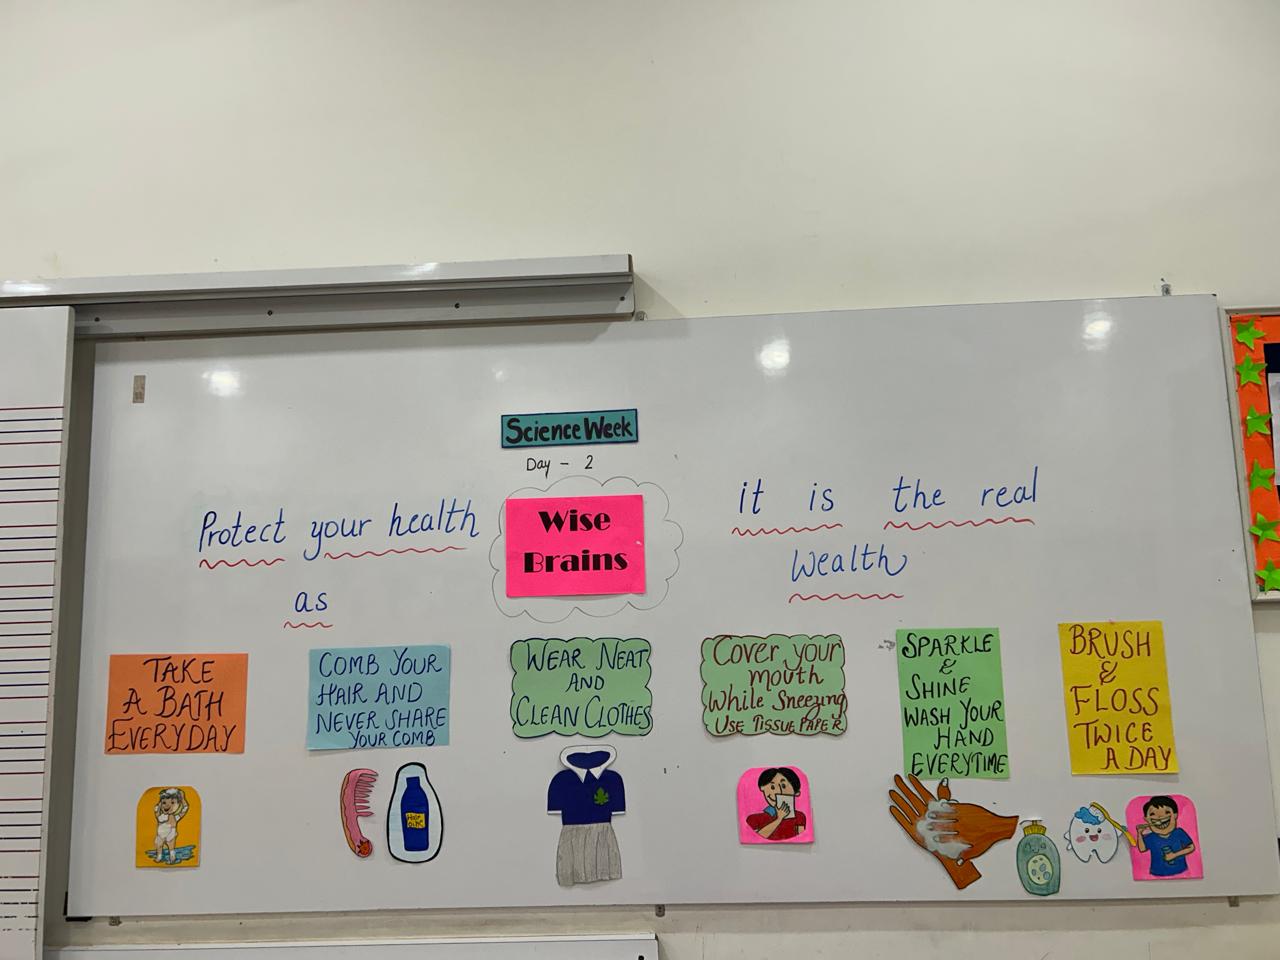 Science Week
Day - 2
Protect your health
as
Wise
Brains
it is the real
Wealth
TAKE
A BATH
EVERYDAY
COMB YOUR
HAIR AND
NEVER SHARE
YOUR COMB
WEAR NEAT
AND
CLEAN CLOTHES
Cover your
mouth
While Sneezing
USE TISSUE PAPER
SPARKLE
&
SHINE
WASH YOUR
HAND
EVERYTIME
BRUSH
&
FLOSS
TWICE
A DAY